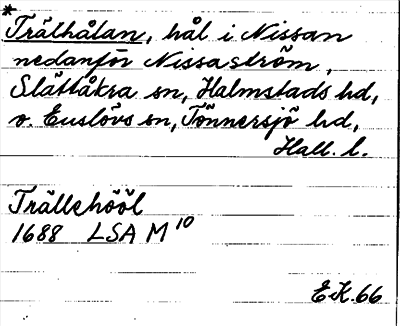 *
Trälhålan, hål i Nissan
nedanför Nissaström,
Slättåkra sn, Halmstads hd,
o. Enslövs sn, Tönnersjö hd,
Hall. l.
Trällehööl
1688 LSA M10
E.K. 66